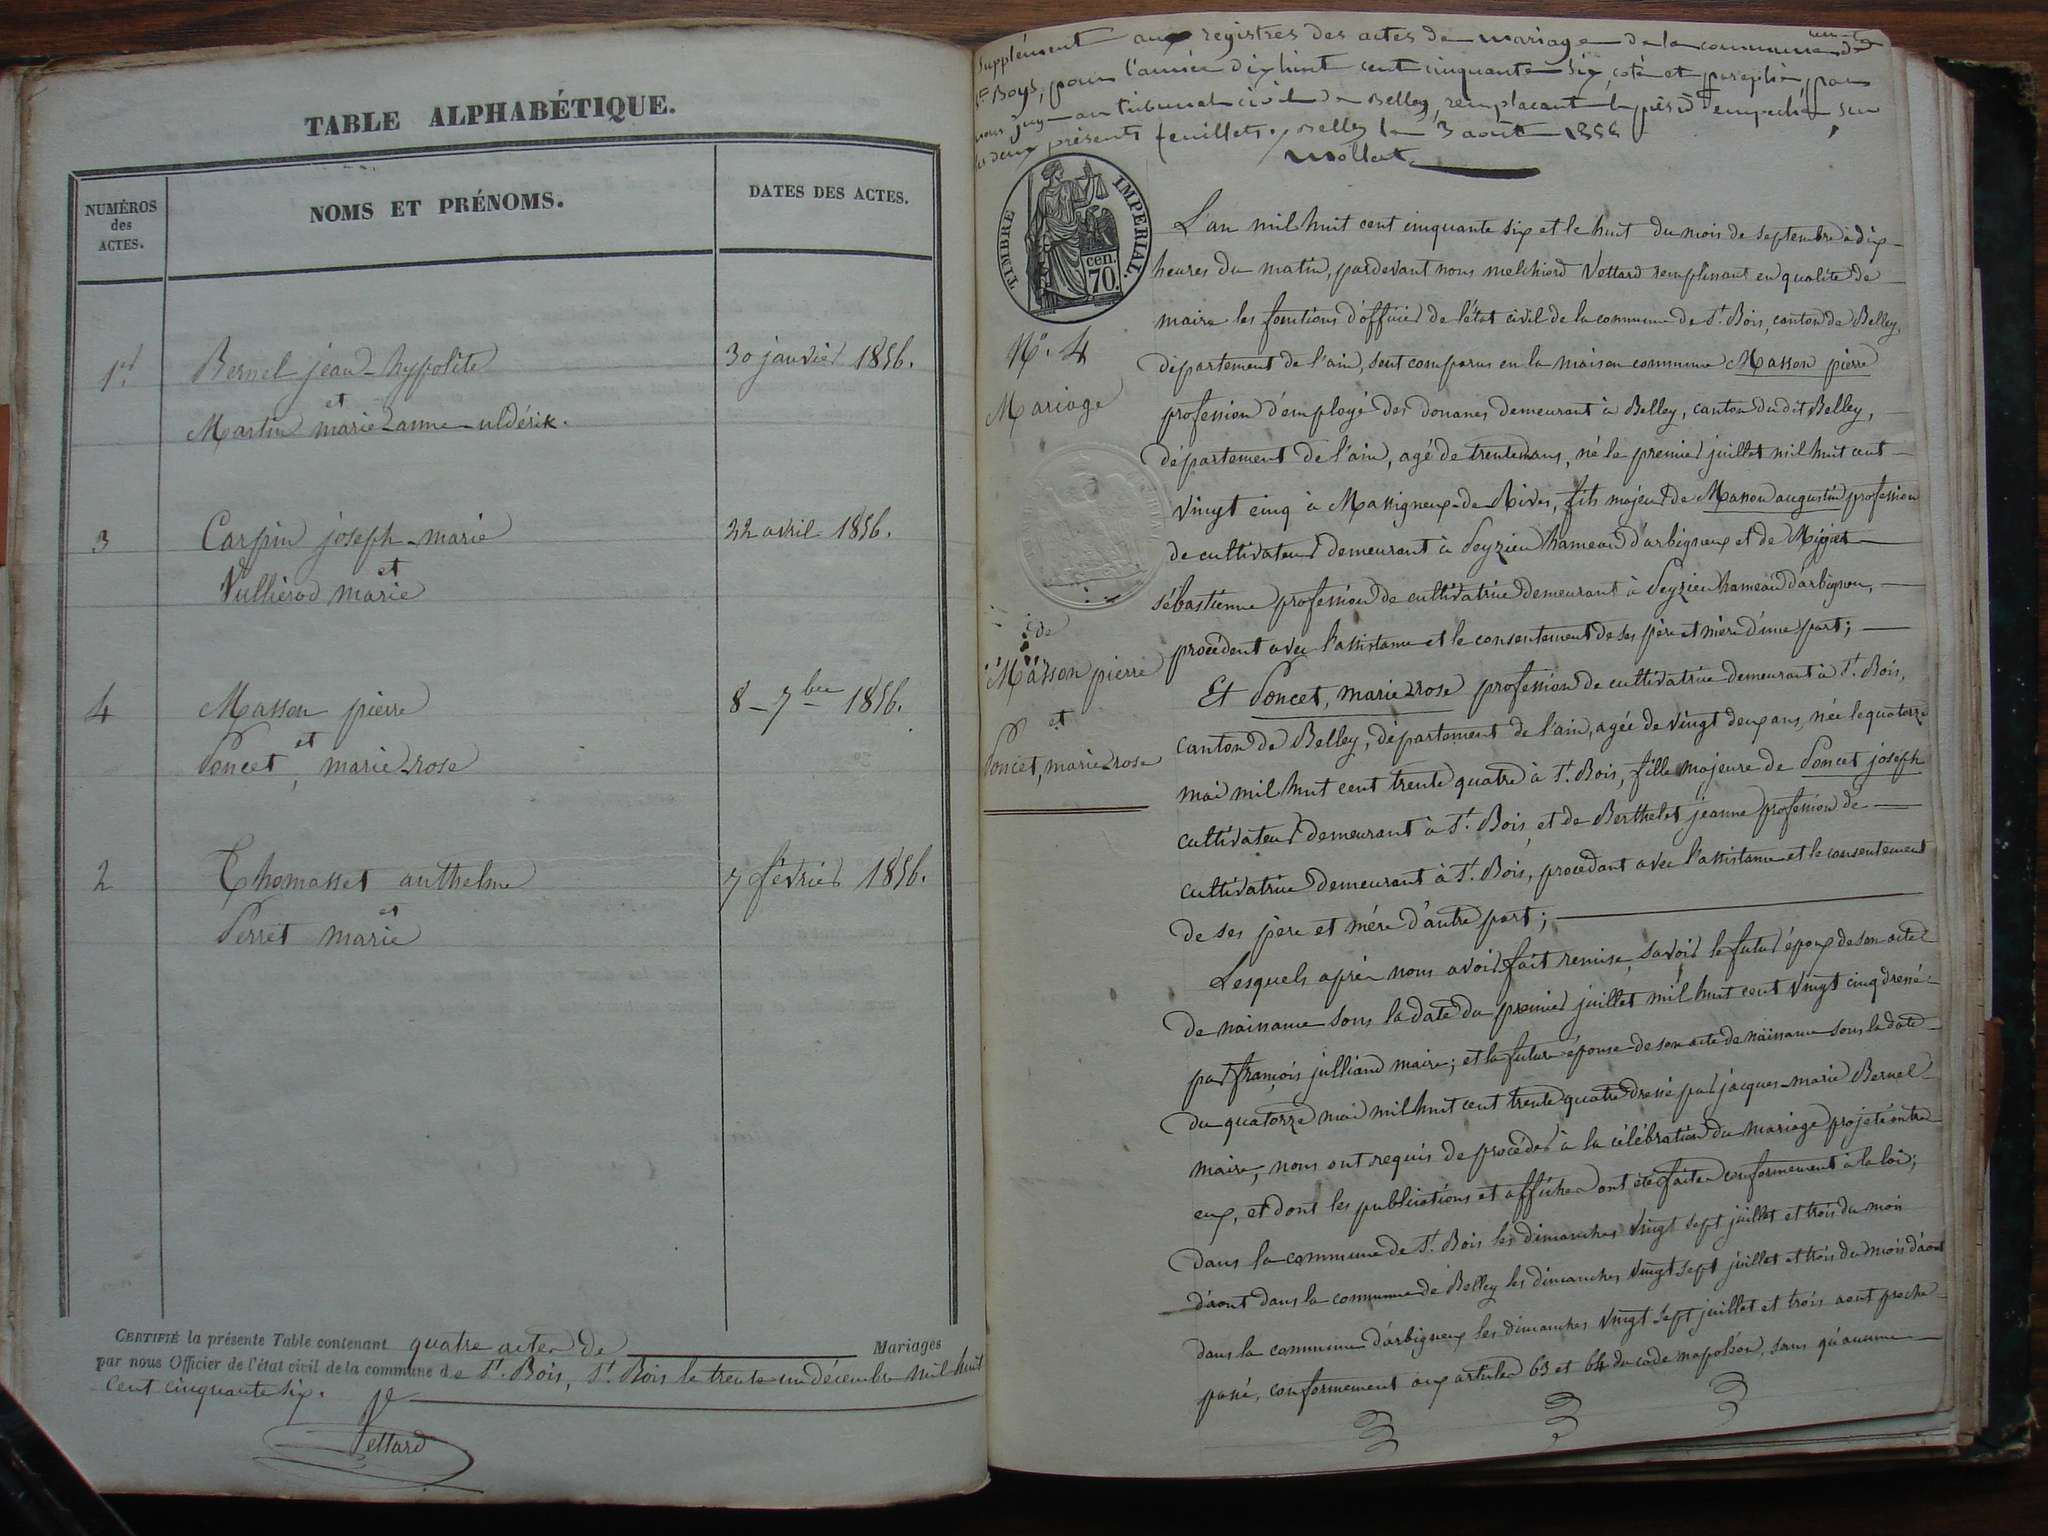 TABLE ALPHABÉTIQUE.
NUMÉROS
des
ACTES.
NOMS ET PRÉNOMS.
DATES DES ACTES.
1er Bernel jean-hypolite 30 janvier 1856.
et
Martin marie-anne-uldérik.
3 Carpin joseph-marie 22 avril 1856.
et
Vulliérod marie
4 Masson pierre 8-7bre 1856.
et
Poncet, marie-rose
2 Thomasset anthelme 7 février 1856.
et
Perret marie
CERTIFIÉ la présente Table contenant quatre actes de Mariages
par nous Officier de l'état civil de la commune de St. Bois, St. Bois le trente un décembre mil huit
cent cinquante six.
Vettard
Supplément aux registres des actes de mariage de la commune de
St Boys, pour l'année dix huit cent cinquante six, coté et paraphé par
nous juge au tribunal civil de Belley, remplaçant le présidt empêché sur
les deux présents feuillets. Belley le 3 août 1856
Mollet
TIMBRE IMPÉRIAL.
cen.
70.
No. 4
Mariage
de
Masson pierre
et
Poncet, marie-rose
L'an mil huit cent cinquante six et le huit du mois de septembre à dix
heures du matin, pardevant nous melchiord Vettard remplissant en qualité de
maire les fonctions d'officier de l'état civil de la commune de St. Bois, canton de Belley,
département de l'ain, sont comparus en la maison commune Masson pierre
profession d'employé des douanes demeurant à Belley, canton du dit Belley,
département de l'ain, agé de trente ans, né le premier juillet mil huit cent
vingt cinq à Massigneux-de-Rives, fils majeur de Masson augustin profession
de cultivateur demeurant à Peyzieu hameau d'arbigneux et de Miguet
sébastienne profession de cultivatrice demeurant à Peyzieu hameau d'arbigneu,
procédent avec l'assistance et le consentement de ses père et mère d'une part;
Et Poncet, marie-rose profession de cultivatrice demeurant à St. Bois,
canton de Belley, département de l'ain, agée de vingt deux ans, née le quatorze
mai mil huit cent trente quatre à St. Bois, fille majeure de Poncet joseph
cultivateur demeurant à St. Bois et de Berthelet jeanne profession de
cultivatrice demeurant à St. Bois, procedant avec l'assistance et le consentement
de ses père et mère d'autre part;
Lesquels après nous avoir fait remise, savoir le futur époux de son acte
de naissance sous la date du premier juillet mil huit cent vingt cinq dressé
par françois julliand maire; et la future épouse de son acte de naissance sous la date
du quatorze mai mil huit cent trente quatre dressé par jacques-marie Bernel
maire, nous ont requis de procéder à la célébration du mariage projeté entre
eux, et dont les publications et affiches ont été faites conformement à la loi;
dans la commune de St. Bois les dimanches vingt sept juillet et trois du mois
d'aout dans la commune de Belley les dimanches vingt sept juillet et trois du mois d'aout
dans la commune d'arbigneux les dimanches vingt sept juillet et trois aout proche
passé, conformement aux articles 63 et 64 du code napoléon, sans qu'aucune